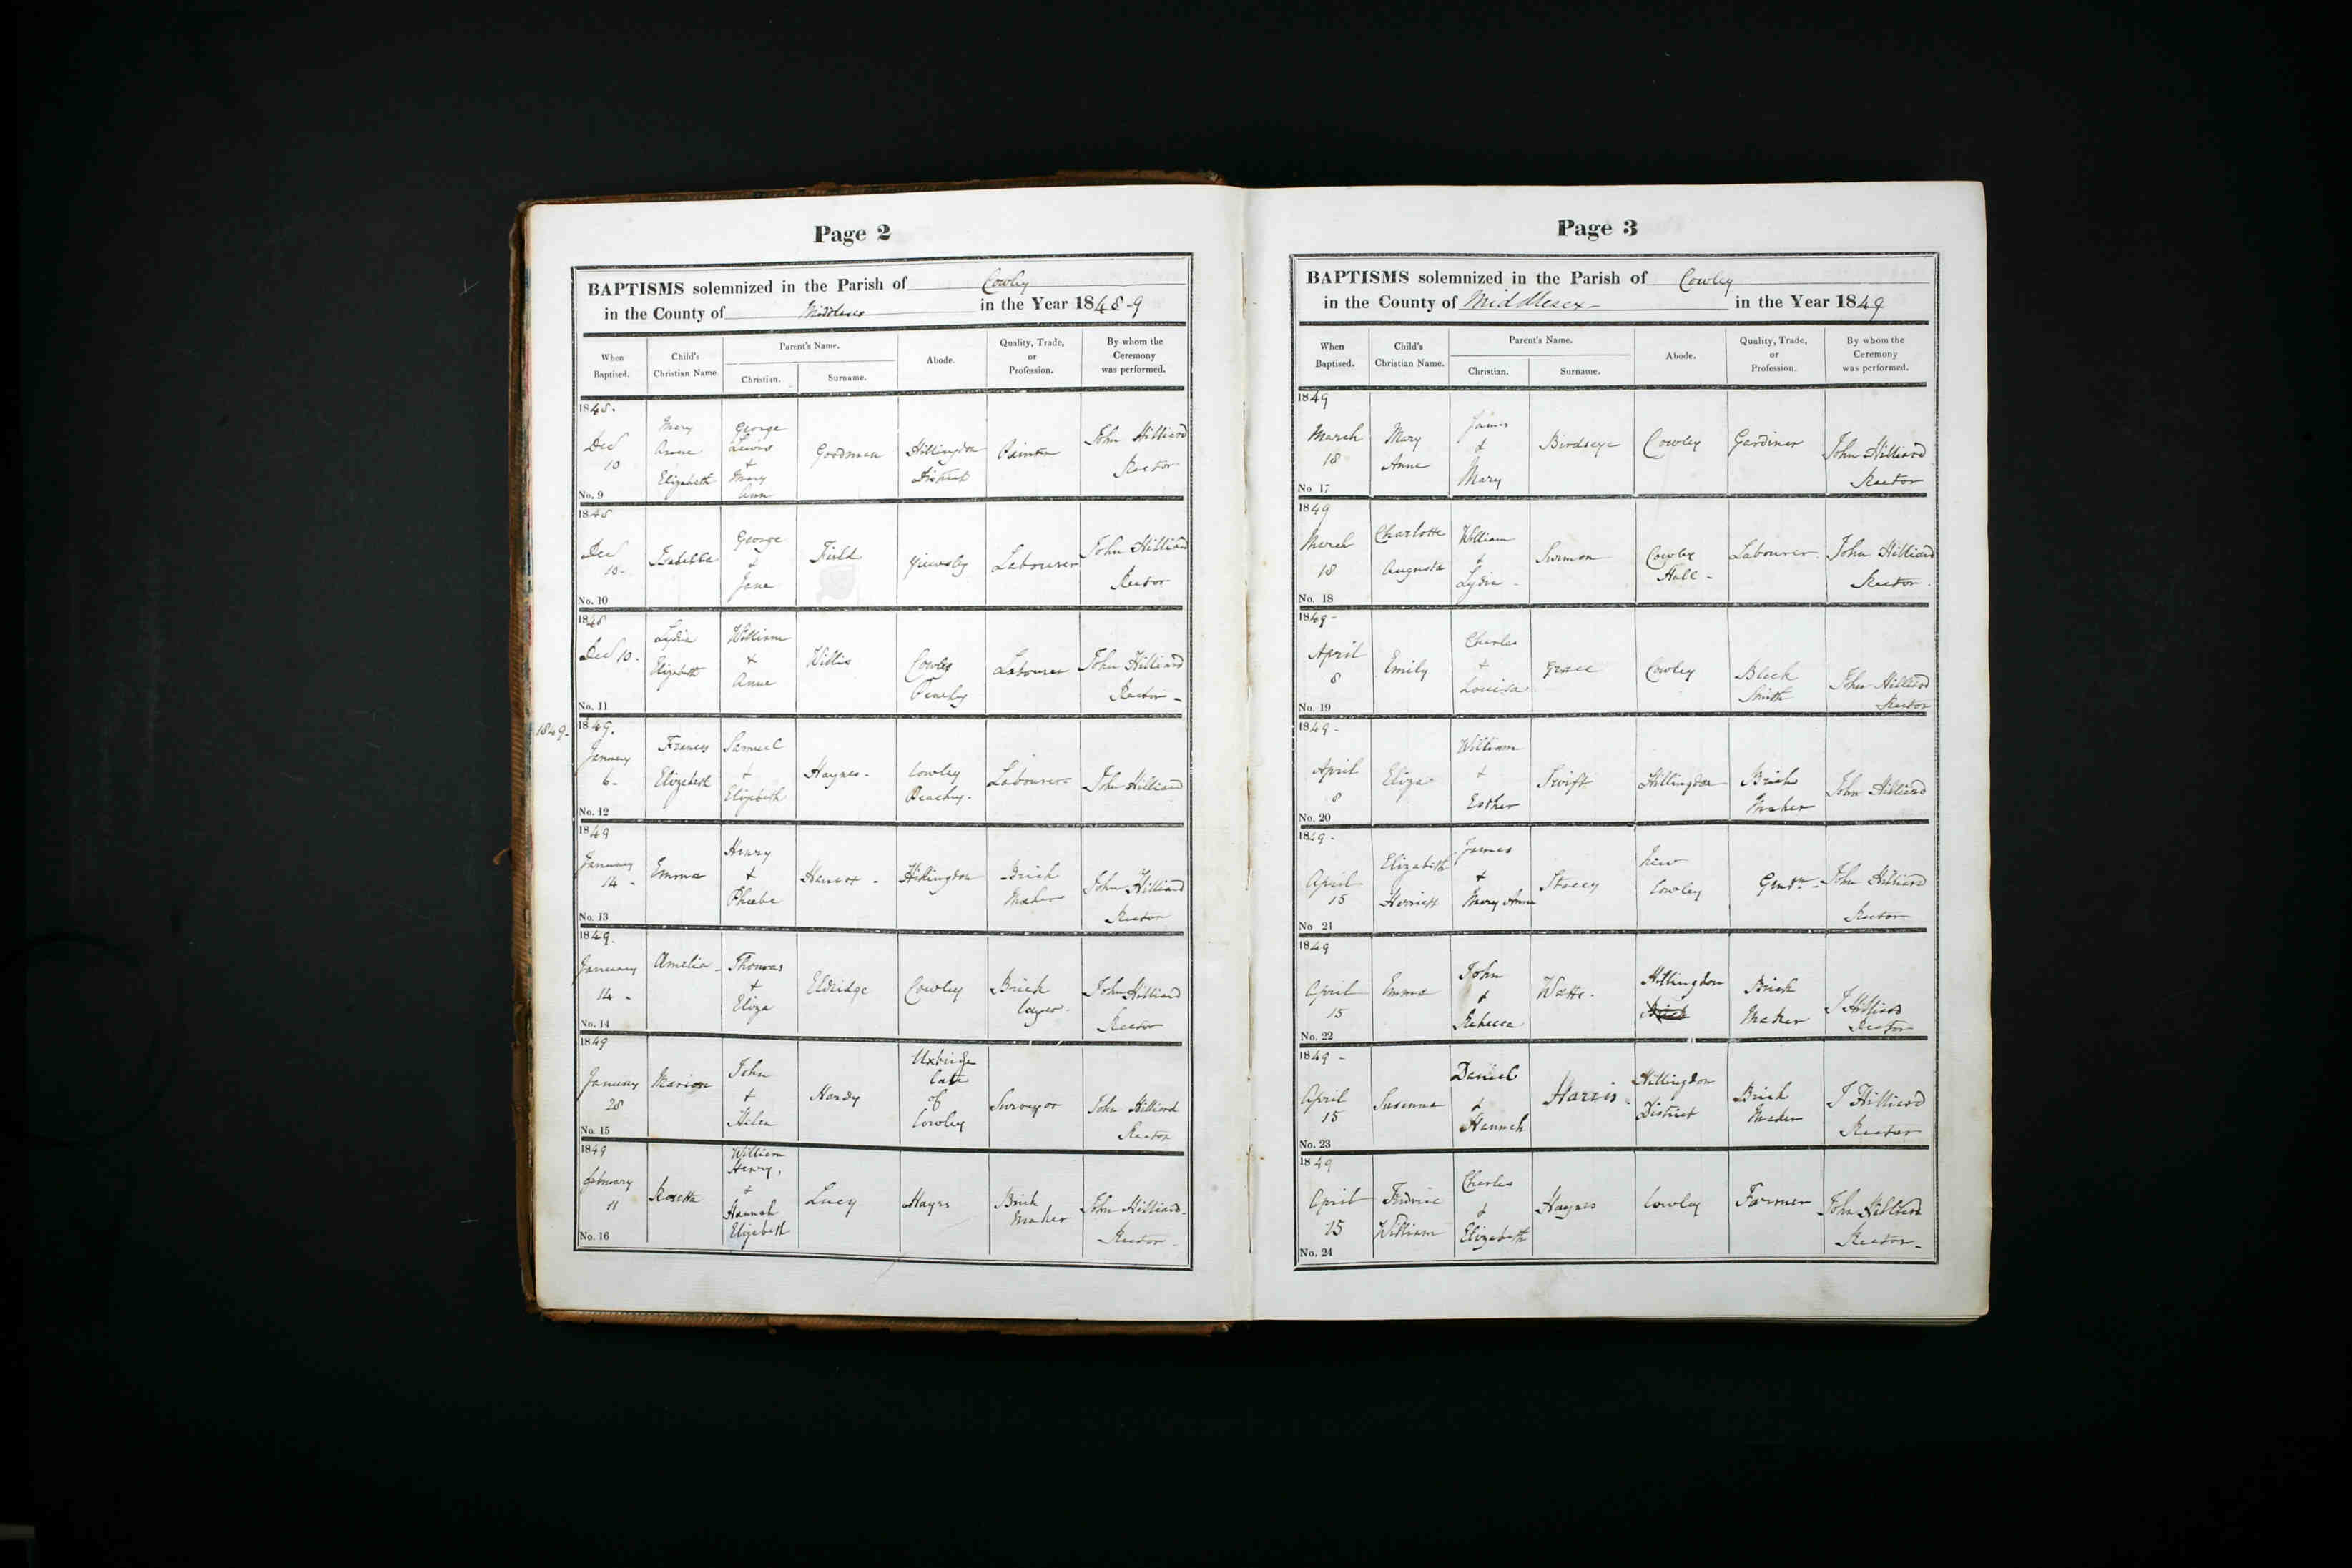 Page 2
BAPTISMS solemnized in the Parish of Cowley
in the County of Middlesex in the Year 1848-9
When Baptised. Child's Christian Name Parent's Name. Christian. Surname. Abode. Quality, Trade, or Profession. By whom the Ceremony was performed.
1848.
Dec 10
Mary Anne Elizabeth
George Lewis & Mary Ann
Goodman
Hillingdon District
Painter
John Hilliard Rector
No. 9
1848
Dec 10.
Isabella
George & Jane
Field
Yiewsly
Labourer
John Hilliard Rector
No. 10
1848
Dec 10.
Lydia Elizabeth
William & Anne
Willis
Cowley Peachy
Labourer
John Hilliard Rector -
No. 11
1849.
1849.
January 6-
Frances Elizabeth
Samuel & Elizabeth
Haynes-
Cowley Peachey.
Labourer
John Hilliard
No. 12
1849
January 14 -
Emma
Henry & Phoebe
Hillingdon
Brick Maker
John Hilliard Rector
No. 13
1849.
January 14 -
Amelia -
Thomas & Eliza
Eldridge
Cowley
Brick layer.
John Hilliard Rector
No. 14
1849
January 28
Marion
John & Helen
Hardy
Uxbridge late of Cowley
Surveyor
John Hilliard Rector
No. 15
1849
February 11
Rosetta
William Henry, & Hannah Elizabeth
Lucy
Hayes
Brick Maker
John Hilliard. Rector -
No. 16
Page 3
BAPTISMS solemnized in the Parish of Cowley
in the County of Middlesex - in the Year 1849
When Baptised. Child's Christian Name. Parent's Name. Christian. Surname. Abode. Quality, Trade, or Profession. By whom the Ceremony was performed.
1849
March 18
Mary Anne
James & Mary
Birdseye
Cowley
Gardiner
John Hilliard Rector
No 17
1849
March 18
Charlotte Augusta
William & Lydia -
Surmon
Cowley Hall -
Labourer.
John Hilliard Rector.
No. 18
1849-
April 8
Emily
Charles & Louisa
Grace
Cowley
Black Smith
John Hilliard Rector
No. 19
1849-
April 8
Eliza
William & Esther
Swift
Hillingdon
Brick Maker
John Hilliard
No. 20
1849-
April 15
Elizabeth Harriett
James & Mary Anne
Stacey
New Cowley
John Hilliard Rector
No 21
1849
April 15
Emma
John & Rebecca
Watts.
Hillingdon
Brick Maker
J Hilliard Rector
No. 22
1849 -
April 15
Susanna
Daniel & Hannah
Harris.
Hillingdon District
Brick Maker
J Hilliard Rector
No. 23
1849
April 15
Fredric William
Charles & Elizabeth
Haynes
Cowley
Farmer
John Hilliard Rector-
No. 24